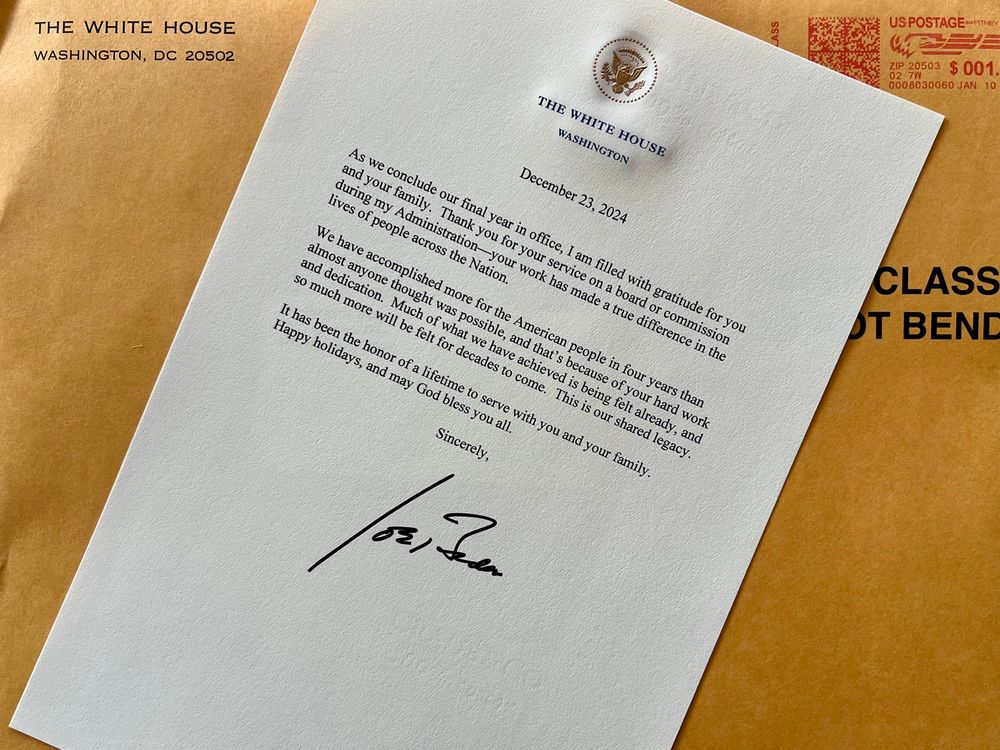 THE WHITE HOUSE
WASHINGTON, DC 20502
CLASS
US POSTAGE
PITNEY
ZIP 20503
$ 001.
02 7W
0008030060 JAN 10
CLASS
OT BEND
THE WHITE HOUSE
WASHINGTON
December 23, 2024
As we conclude our final year in office, I am filled with gratitude for you
and your family. Thank you for your service on a board or commission
during my Administration—your work has made a true difference in the
lives of people across the Nation.
We have accomplished more for the American people in four years than
almost anyone thought was possible, and that's because of your hard work
and dedication. Much of what we have achieved is being felt already, and
so much more will be felt for decades to come. This is our shared legacy.
It has been the honor of a lifetime to serve with you and your family.
Happy holidays, and may God bless you all.
Sincerely,
Joe Biden